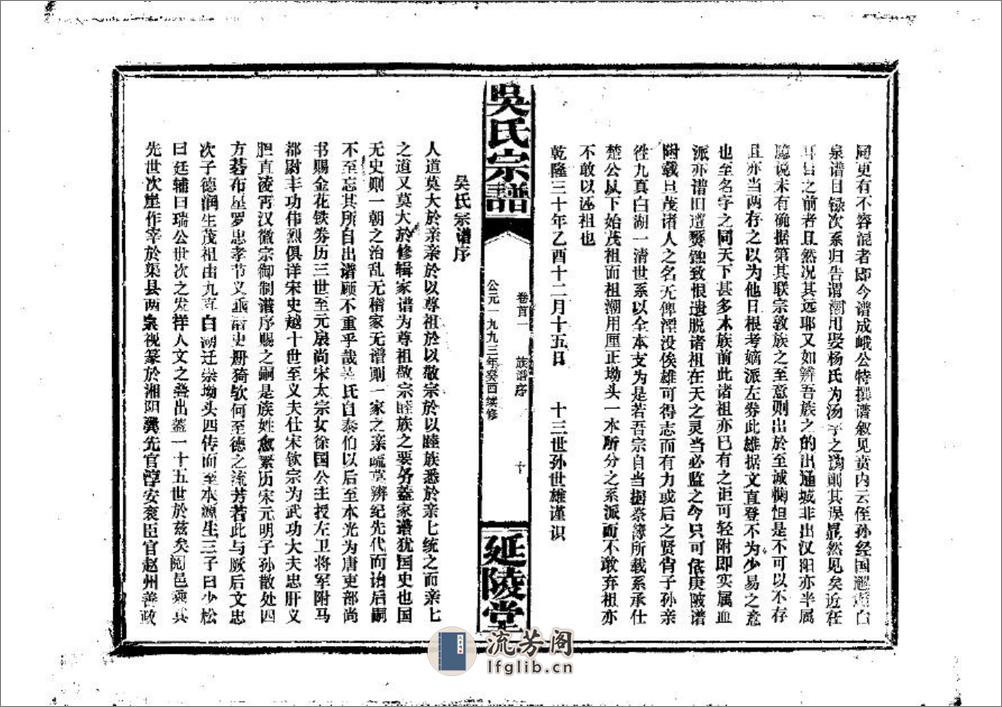 同更有不容混者即今谱成峨公特撰谱叙见黄内云侄孙经国
泉谱目录次系归告谓潮用娶杨氏为汤子之讹则其误显然见矣近在
耳目之前者且然况其远耶又如辨吾族之的出通城非出汉阳亦半属
臆说未有确据第其联宗敦族之至意则出於至诚恻怛是不可以不存
且亦当两存之以为他日根考嫡派左券此雄据文直登不为少易之意
也至名字之同天下甚多本族前此诸祖亦已有之讵可轻附即实属血
派亦谱旧遭蚀致恨遗脱诸祖在天之灵当必监之今只可依庚陂谱
附载且茂诸人之名无俾湮没俟雄可得志而有力或后之贤肖子孙亲
徃九真白湖一清世系以全本支为是若吾宗自当据蔡簿所载系承仕
楚公以下始茂祖而祖潮用厘正坳头一水所分之系派而不敢弃祖亦
不敢以诬祖也
乾隆三十年乙酉十二月十五日 十三世孙世雄谨识
吴氏宗谱
卷首一 族谱序 十
公元一九九三年癸酉续修
延陵堂
吴氏宗谱序
人道莫大於亲亲亲於以尊祖於以敬宗於以睦族悉於亲七统之而亲七
之道又莫大於修辑家谱为尊祖敬宗睦族之要务盖家谱犹国史也国
无史则一朝之治乱无稽家无谱则一家之亲疏莫辨纪先代而诒后嗣
不至忘其所自出谱顾不重乎哉吴氏自泰伯以后至本光为唐吏部尚
书赐金花铁券历三世至元扆尚宋太宗女徐国公主授左卫将军附马
都尉丰功伟烈俱详宋史越十世至义夫仕宋钦宗为武功大夫忠肝义
胆直凌霄汉徽宗御制谱序赐之嗣是族姓愈繁历宋元明子孙散处四
方碁布星罗忠孝节义垂前史册猗欤何至德之流芳若此与厥后文忠
次子德润生茂祖由九真白湖迁崇坳头四传而至本源生三子曰少松
曰廷辅曰瑞公世次之发祥人文之叠出盖一十五世於兹矣阅邑乘其
先世次崖作宰於渠县两泉视篆於湘阴先官淳安衮臣官赵州善政
流芳阁
lfglib.cn